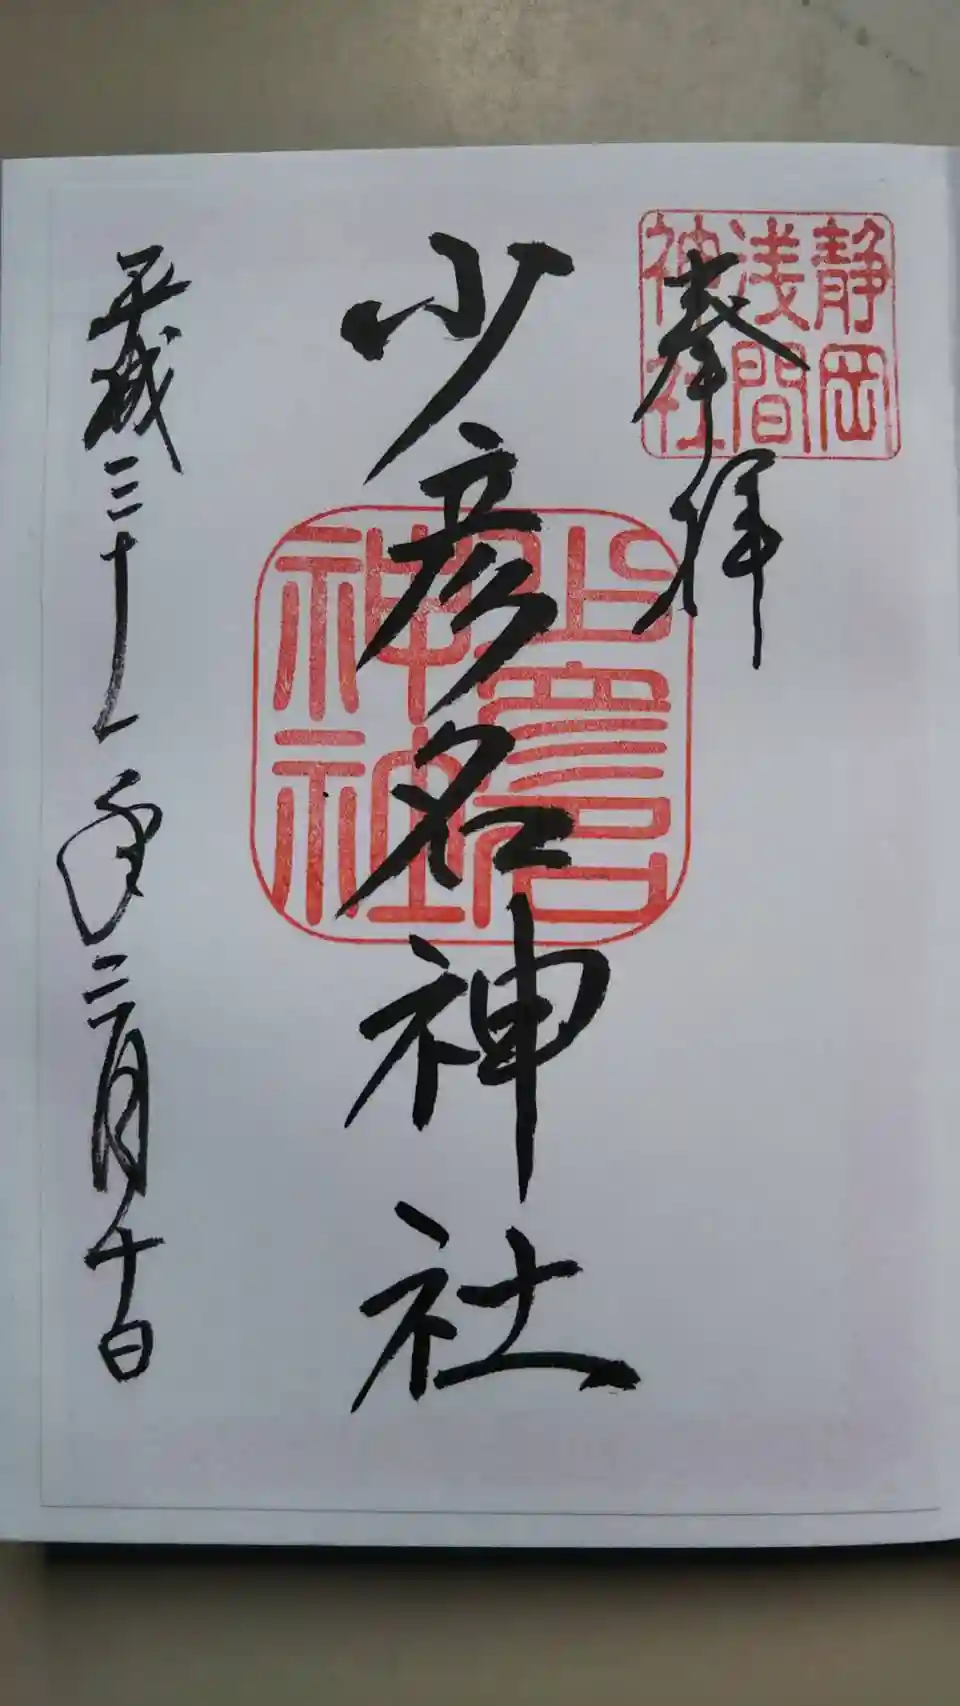 静岡
浅間
神社
奉拝
少彦名神社
少彦名
神社
平成三十一年二月十日